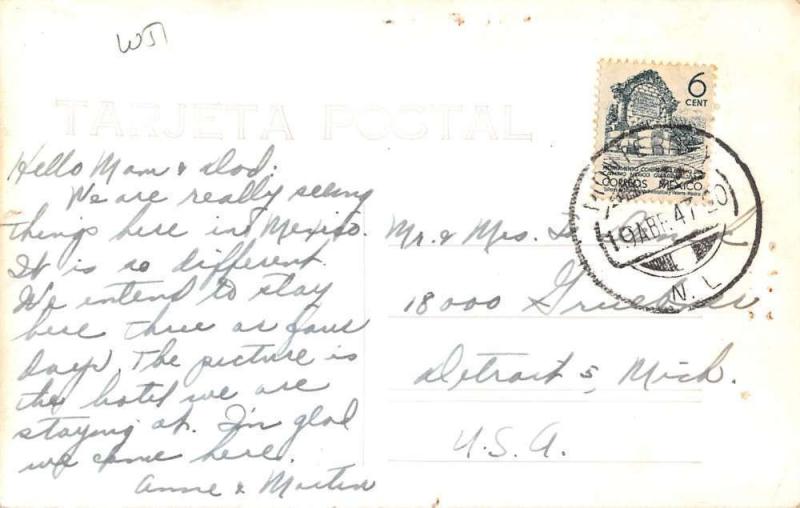 WJ
TARJETA POSTAL
6
CENT
CORREOS MEXICO
MONTERREY
19 ABR. 47
N. L
Hello Mom & Dad.
We are really seeing
things here in Mexico.
It is so different.
We intend to stay
here three or four
days. The picture is
the hotel we are
staying at. I'm glad
we came here.
Anne & Martin
Mr. & Mrs.
18000
Detroit 5, Mich.
U.S.A.